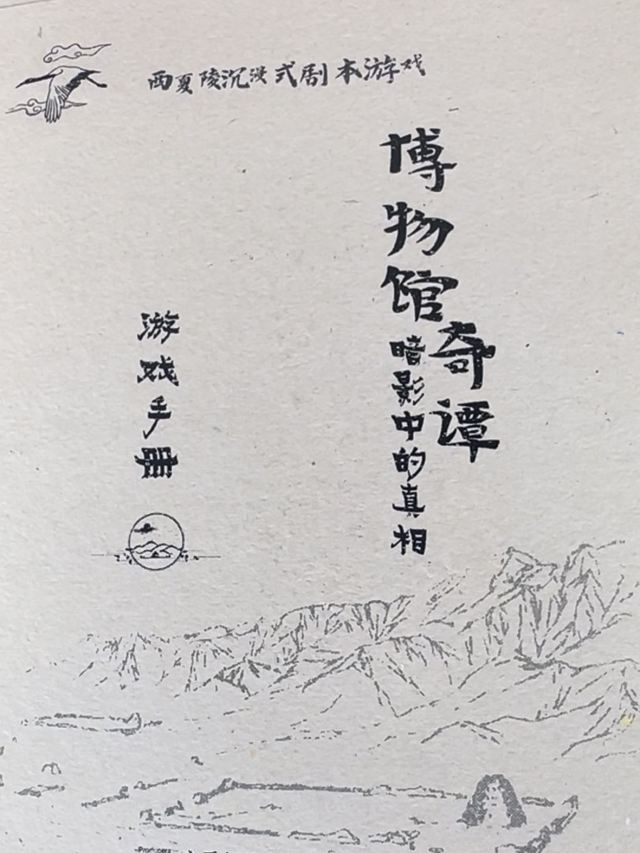 西夏陵沉浸式剧本游戏
博物馆奇谭
暗影中的真相
游戏手册